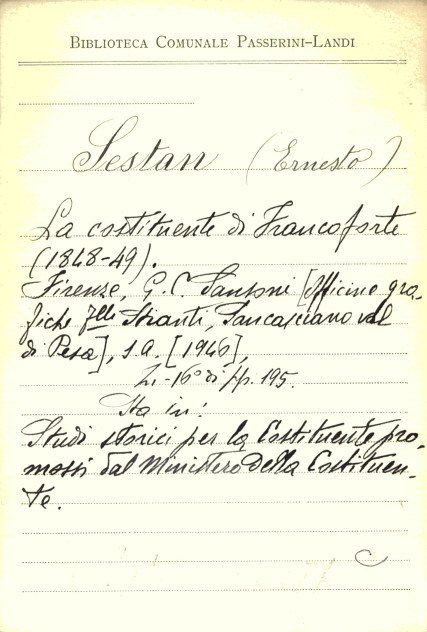 BIBLIOTECA COMUNALE PASSERINI-LANDI
Sestan (Ernesto)
La costituente di Francoforte
(1848-49).
Firenze, G. C. Sansoni [Officine gra-
fiche F.lli Stianti, Sancasciano val
di Pesa], s.a. [1946],
in-16° di pp. 195.
Sta in:
Studi storici per la Costituente pro-
mossi dal Ministero della Costituen-
te.
C